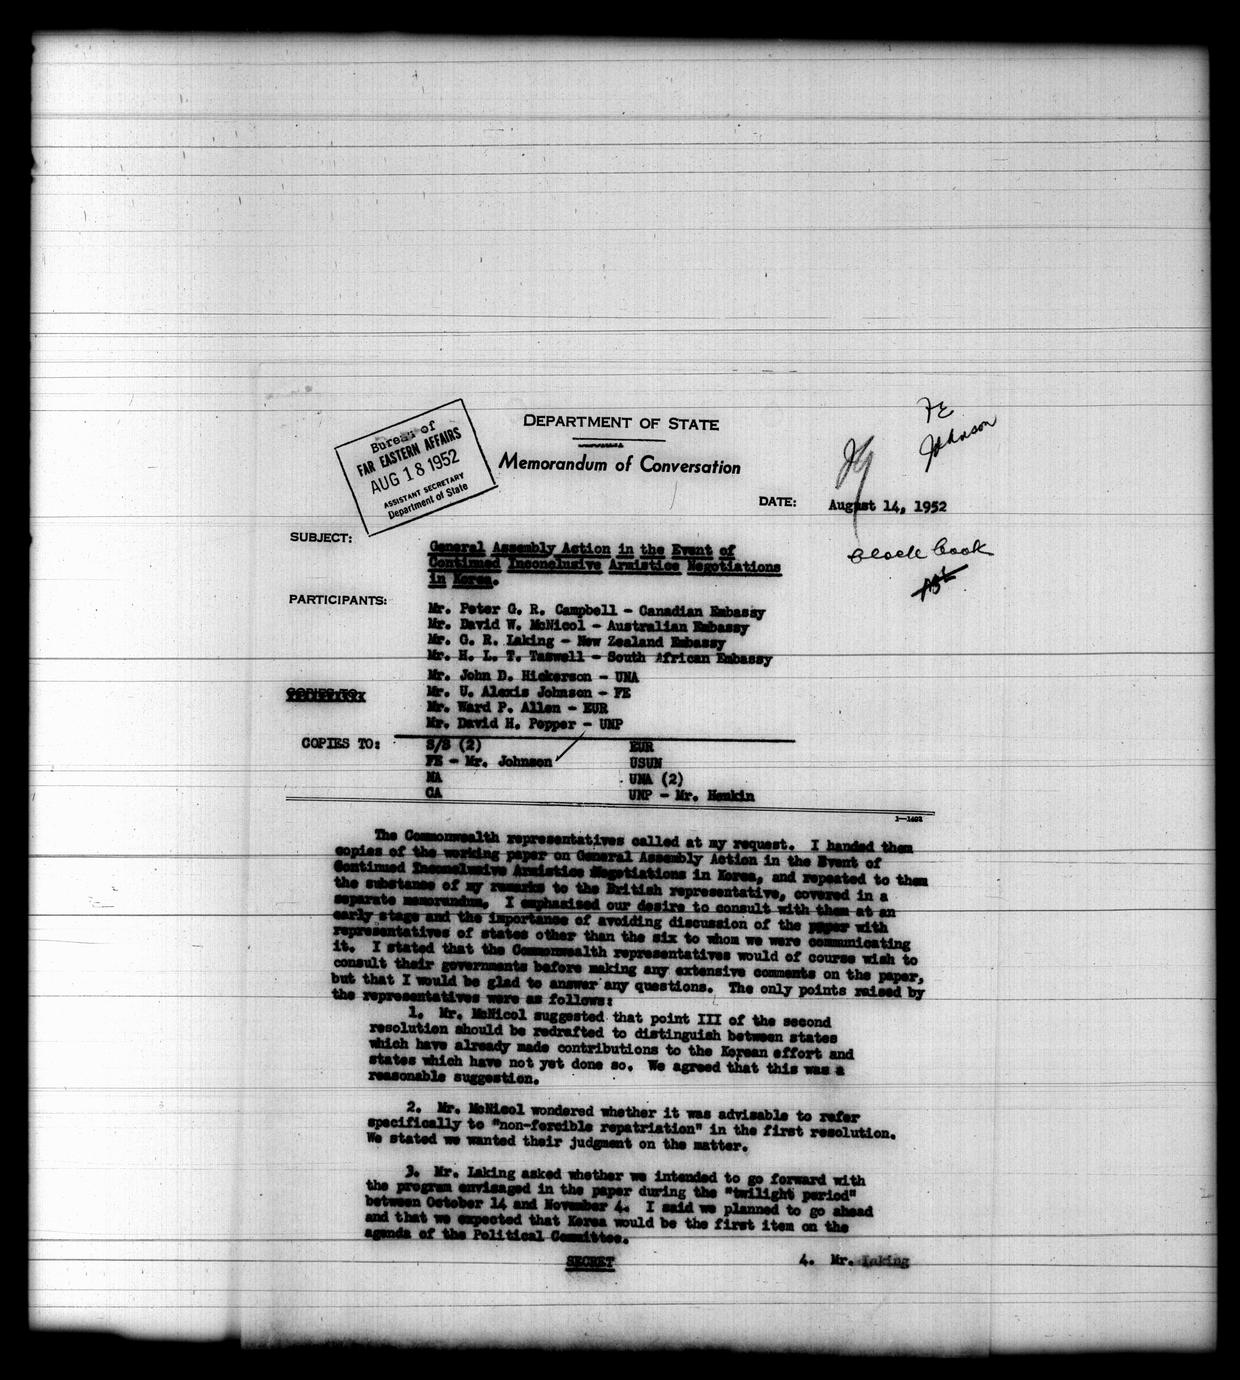 Bureau of
FAR EASTERN AFFAIRS
AUG 18 1952
ASSISTANT SECRETARY
Department of State
DEPARTMENT OF STATE
Memorandum of Conversation
FE
Johnson
DATE: August 14, 1952
black book
SUBJECT: General Assembly Action in the Event of
Continued Inconclusive Armistice Negotiations
in Korea.
PARTICIPANTS: Mr. Peter G. R. Campbell - Canadian Embassy
Mr. David W. McNicol - Australian Embassy
Mr. G. R. Laking - New Zealand Embassy
Mr. H. L. T. Taswell - South African Embassy
Mr. John D. Hickerson - UNA
COPIES TO: Mr. U. Alexis Johnson - FE
Mr. Ward P. Allen - EUR
Mr. David H. Popper - UNP
COPIES TO: S/S (2) EUR
FE - Mr. Johnson USUN
NA UNA (2)
CA UNP - Mr. Henkin
1-1492
The Commonwealth representatives called at my request. I handed them
copies of the working paper on General Assembly Action in the Event of
Continued Inconclusive Armistice Negotiations in Korea, and repeated to them
the substance of my remarks to the British representative, covered in a
separate memorandum. I emphasized our desire to consult with them at an
early stage and the importance of avoiding discussion of the paper with
representatives of states other than the six to whom we were communicating
it. I stated that the Commonwealth representatives would of course wish to
consult their governments before making any extensive comments on the paper,
but that I would be glad to answer any questions. The only points raised by
the representatives were as follows:
1. Mr. McNicol suggested that point III of the second
resolution should be redrafted to distinguish between states
which have already made contributions to the Korean effort and
states which have not yet done so. We agreed that this was a
reasonable suggestion.
2. Mr. McNicol wondered whether it was advisable to refer
specifically to "non-forcible repatriation" in the first resolution.
We stated we wanted their judgment on the matter.
3. Mr. Laking asked whether we intended to go forward with
the program envisaged in the paper during the "twilight period"
between October 14 and November 4. I said we planned to go ahead
and that we expected that Korea would be the first item on the
agenda of the Political Committee.
SECRET 4. Mr. Laking